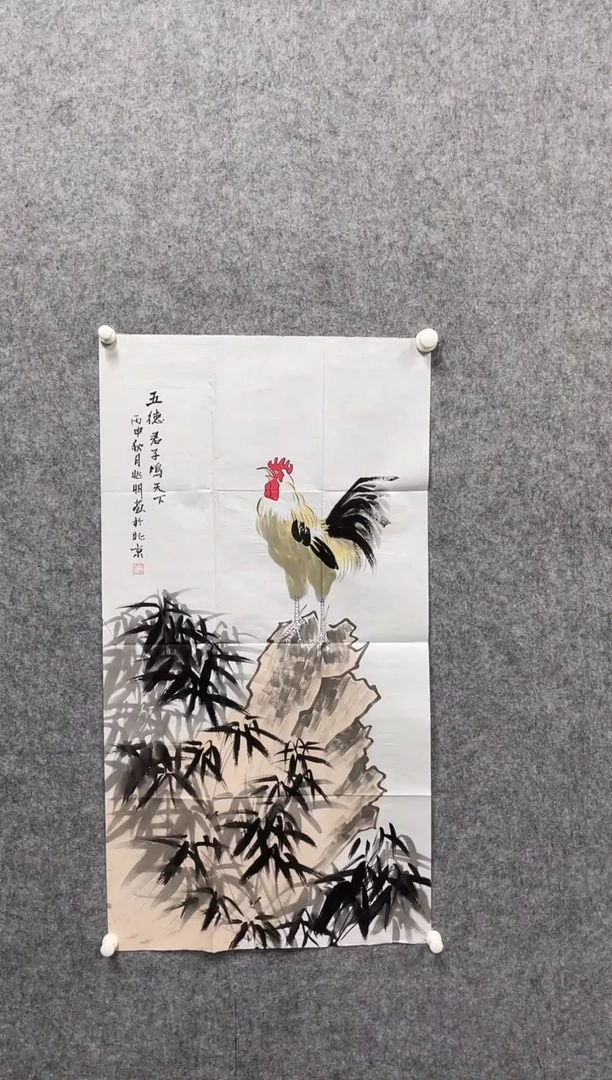 五德君子鸣天下
丙申秋月兆明写于北京